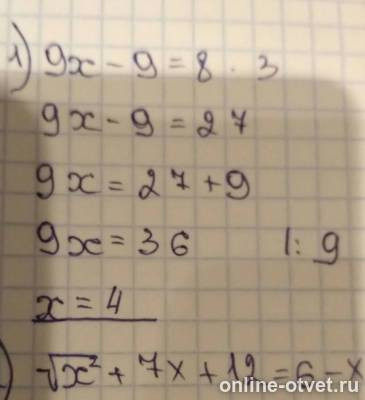 1) 9x - 9 = 8 · 3
9x - 9 = 27
9x = 27 + 9
9x = 36 |: 9
x = 4
) √x² + 7x + 12 = 6 - x
online-otvet.ru